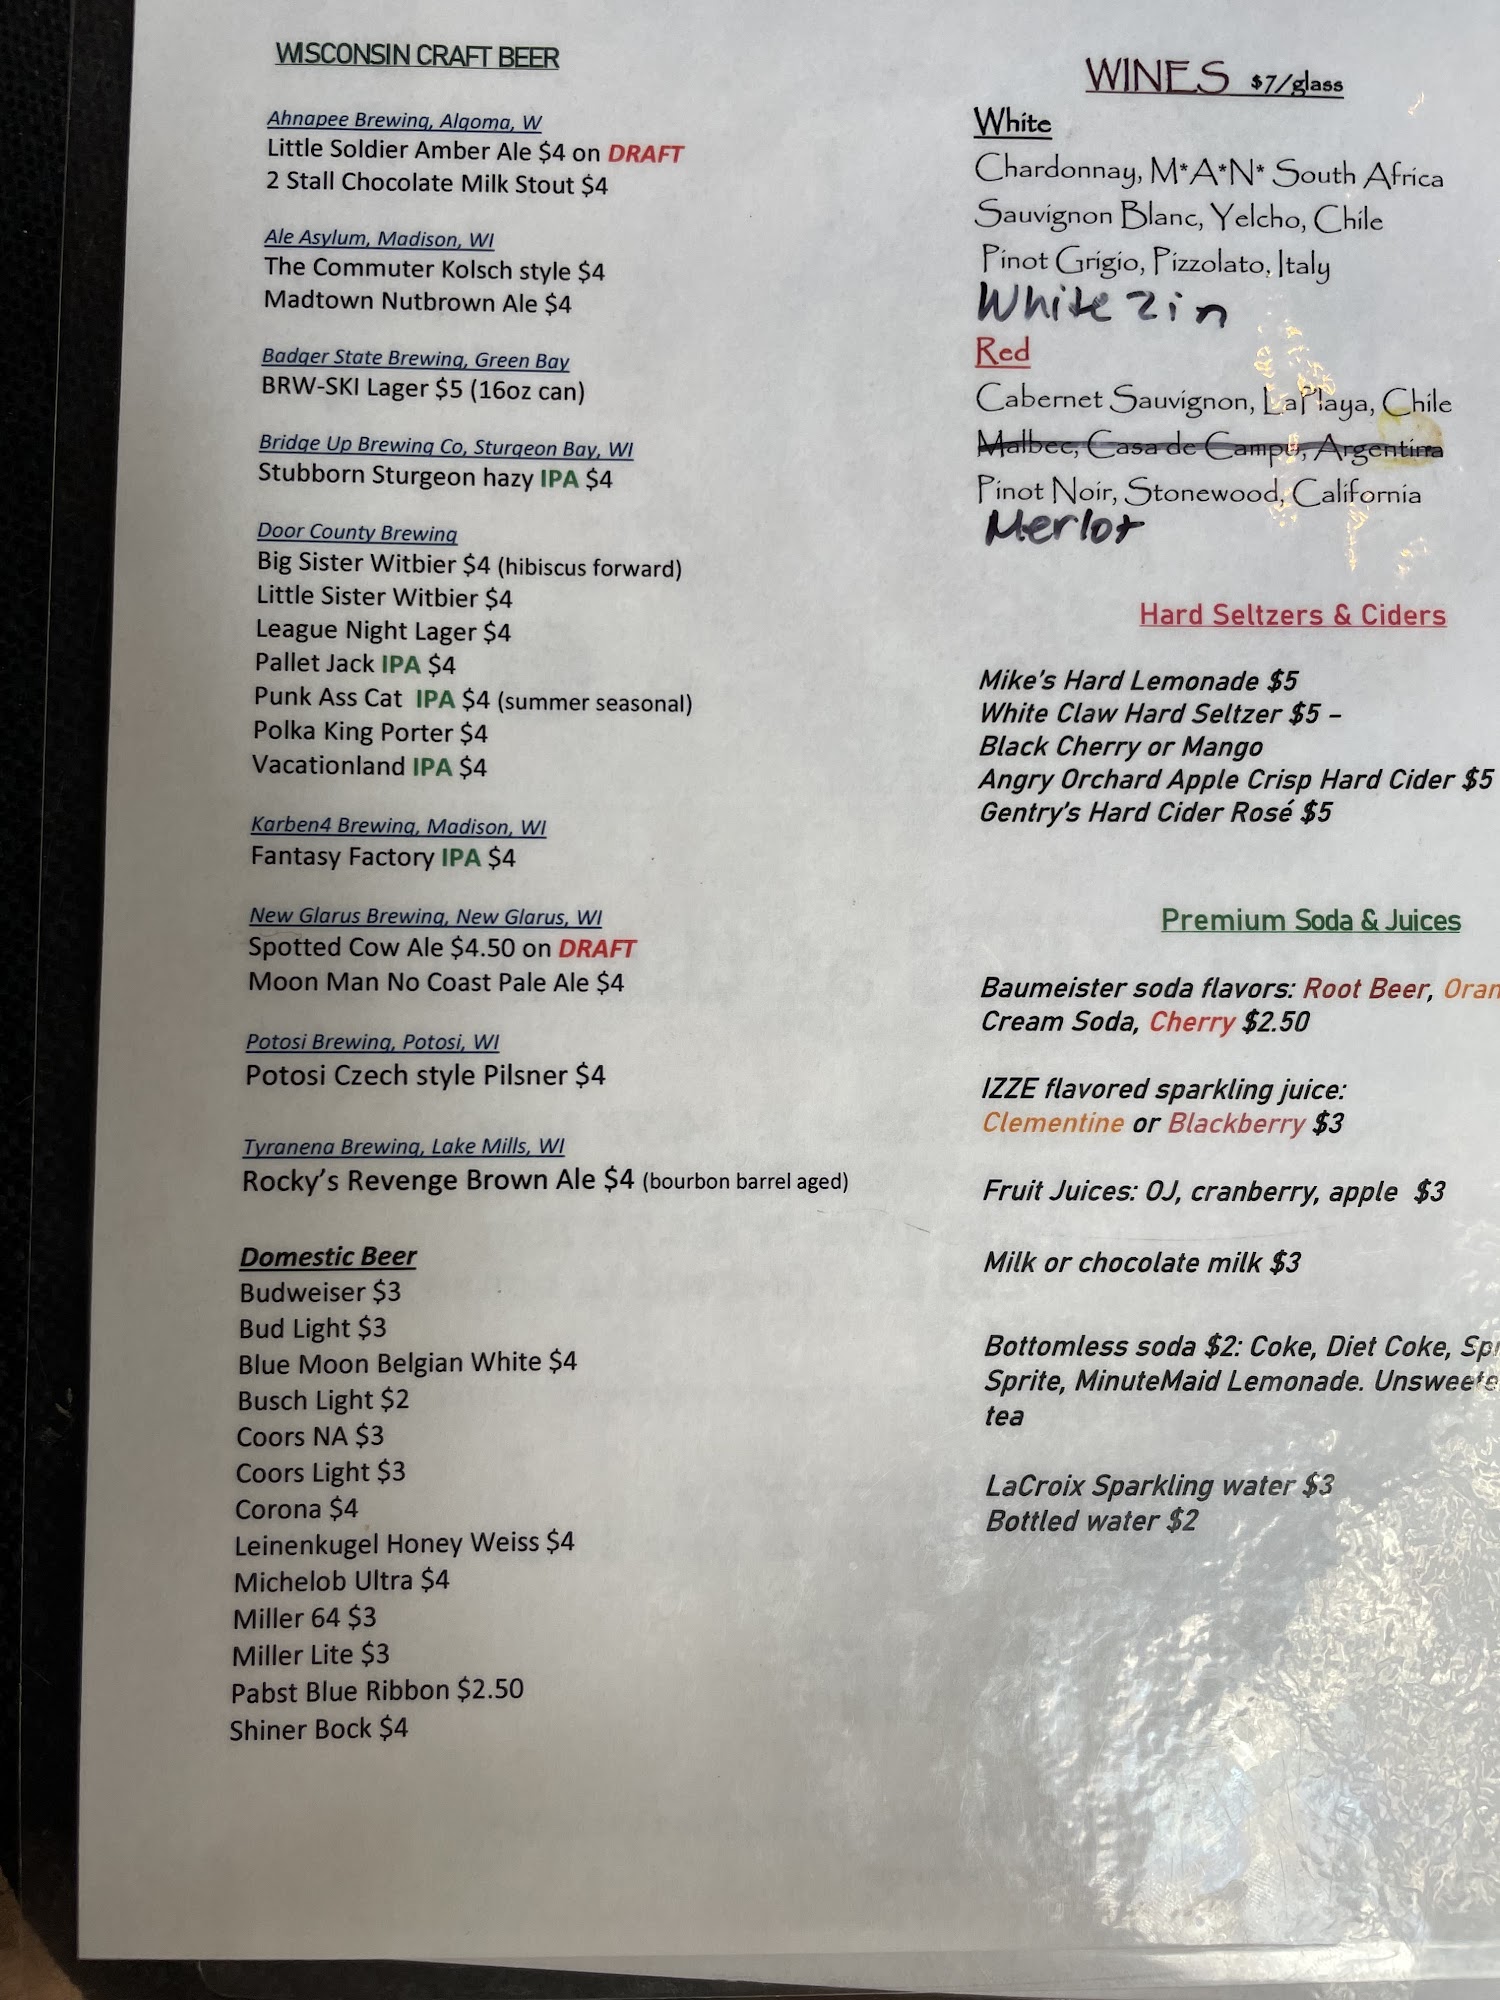 WISCONSIN CRAFT BEER
Ahnapee Brewing, Algoma, W
Little Soldier Amber Ale $4 on DRAFT
2 Stall Chocolate Milk Stout $4
Ale Asylum, Madison, WI
The Commuter Kolsch style $4
Madtown Nutbrown Ale $4
Badger State Brewing, Green Bay
BRW-SKI Lager $5 (16oz can)
Bridge Up Brewing Co, Sturgeon Bay, WI
Stubborn Sturgeon hazy IPA $4
Door County Brewing
Big Sister Witbier $4 (hibiscus forward)
Little Sister Witbier $4
League Night Lager $4
Pallet Jack IPA $4
Punk Ass Cat IPA $4 (summer seasonal)
Polka King Porter $4
Vacationland IPA $4
Karben4 Brewing, Madison, WI
Fantasy Factory IPA $4
New Glarus Brewing, New Glarus, WI
Spotted Cow Ale $4.50 on DRAFT
Moon Man No Coast Pale Ale $4
Potosi Brewing, Potosi, WI
Potosi Czech style Pilsner $4
Tyranena Brewing, Lake Mills, WI
Rocky's Revenge Brown Ale $4 (bourbon barrel aged)
Domestic Beer
Budweiser $3
Bud Light $3
Blue Moon Belgian White $4
Busch Light $2
Coors NA $3
Coors Light $3
Corona $4
Leinenkugel Honey Weiss $4
Michelob Ultra $4
Miller 64 $3
Miller Lite $3
Pabst Blue Ribbon $2.50
Shiner Bock $4
WINES $7/glass
White
Chardonnay, M*A*N* South Africa
Sauvignon Blanc, Yelcho, Chile
Pinot Grigio, Pizzolato, Italy
White Zin
Red
Cabernet Sauvignon, LaPlaya, Chile
Malbec, Casa de Campo, Argentina
Pinot Noir, Stonewood, California
Merlot
Hard Seltzers & Ciders
Mike's Hard Lemonade $5
White Claw Hard Seltzer $5 –
Black Cherry or Mango
Angry Orchard Apple Crisp Hard Cider $5
Gentry's Hard Cider Rosé $5
Premium Soda & Juices
Baumeister soda flavors: Root Beer, Oran
Cream Soda, Cherry $2.50
IZZE flavored sparkling juice:
Clementine or Blackberry $3
Fruit Juices: OJ, cranberry, apple $3
Milk or chocolate milk $3
Bottomless soda $2: Coke, Diet Coke, Spr
Sprite, MinuteMaid Lemonade. Unsweete
tea
LaCroix Sparkling water $3
Bottled water $2